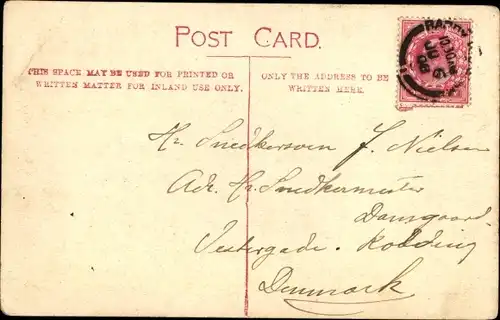 POST CARD.
THIS SPACE MAY BE USED FOR PRINTED OR
WRITTEN MATTER FOR INLAND USE ONLY.
ONLY THE ADDRESS TO BE
WRITTEN HERE.
BARRY
JA 6
06
Hr. Snedkersven J. Nielsen
Adr. Hr. Snedkermester
Damgaard
Vestergade. Kolding
Denmark